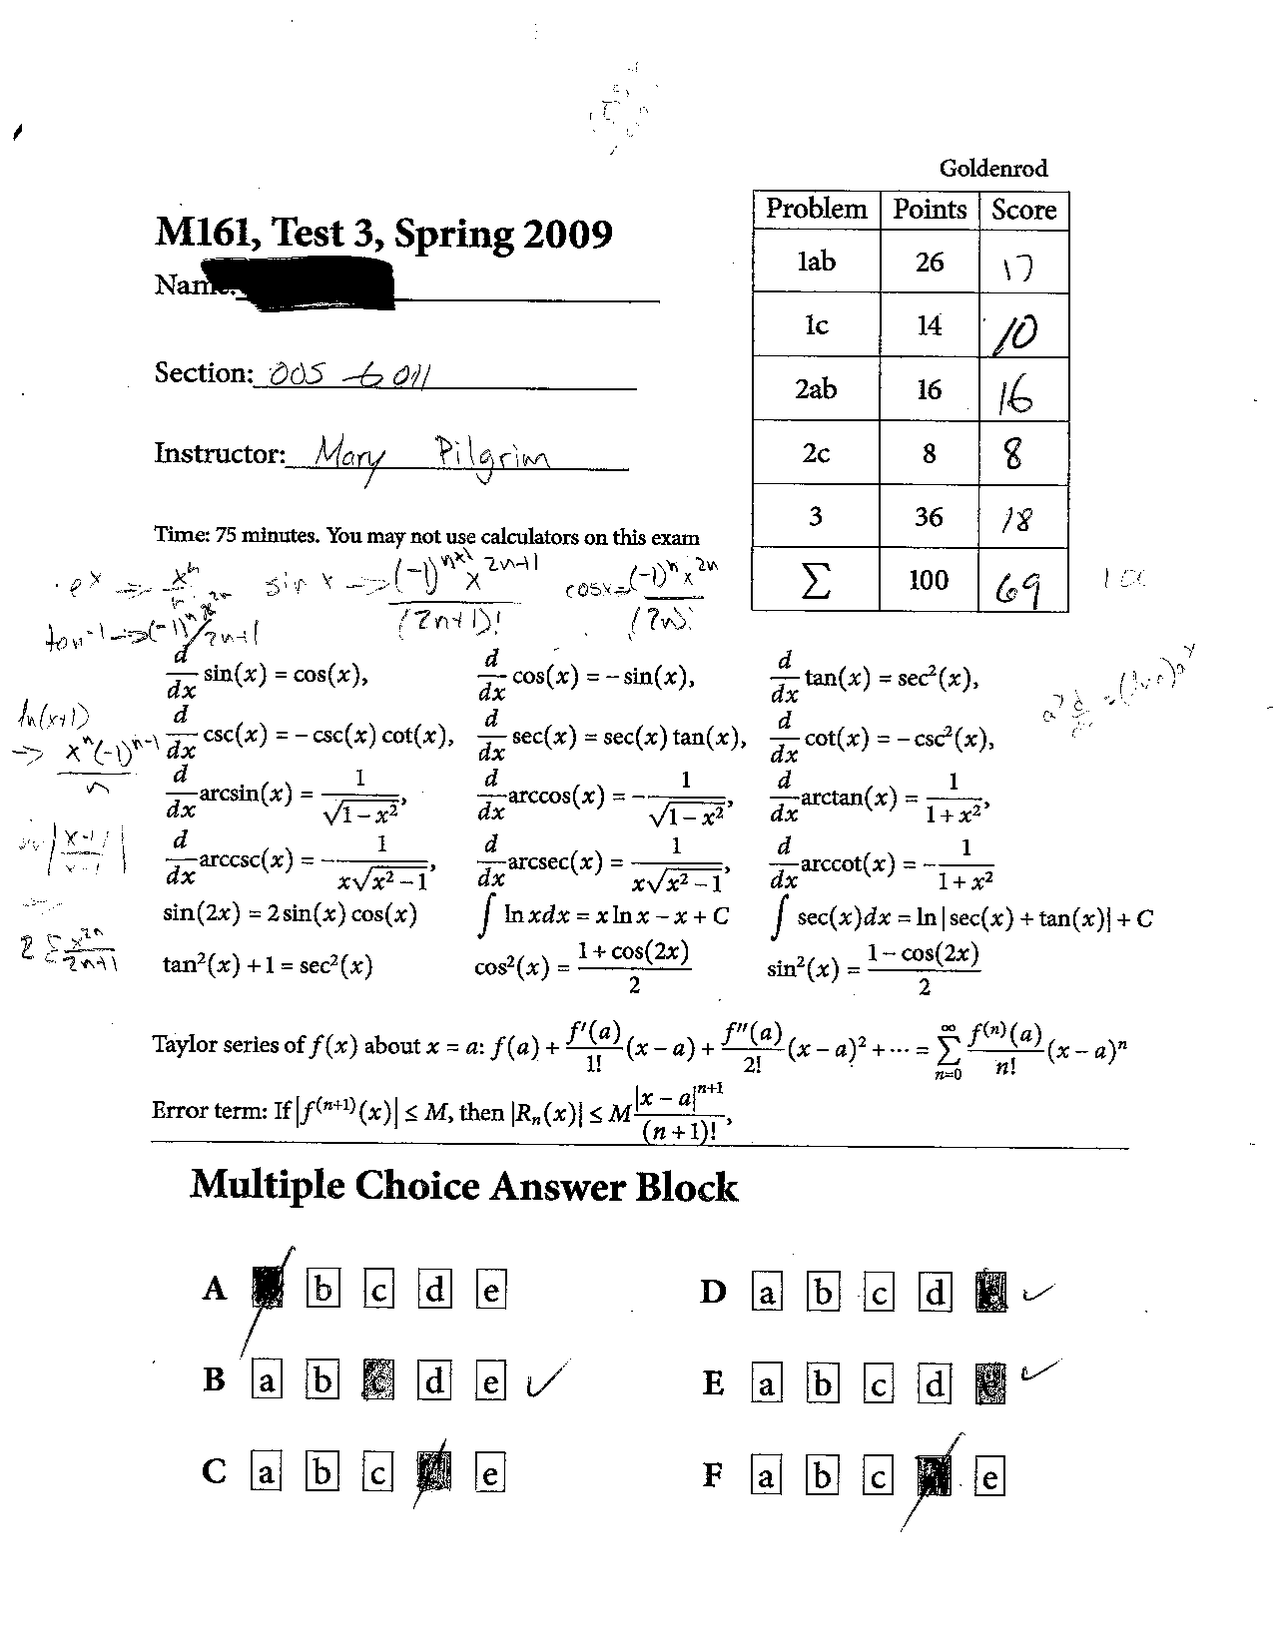 Goldenrod
Problem Points Score
1ab 26 17
1c 14 10
2ab 16 16
2c 8 8
3 36 18
Σ 100 69
100
M161, Test 3, Spring 2009
Name:
Section: 005 → 011
Instructor: Mary Pilgrim
Time: 75 minutes. You may not use calculators on this exam
sin x → (-1)^{n+1} x^{2n+1} / (2n+1)!
cos x = (-1)^n x^{2n} / (2n)!
tan^{-1} → (-1)^n x^{2n} / 2n+1
ln(x+1) → x^n (-1)^{n-1} / n
2 Σ x^{2n} / 2n+1
d/dx sin(x) = cos(x), d/dx cos(x) = −sin(x), d/dx tan(x) = sec²(x),
d/dx csc(x) = −csc(x) cot(x), d/dx sec(x) = sec(x) tan(x), d/dx cot(x) = −csc²(x),
d/dx arcsin(x) = 1/√(1−x²), d/dx arccos(x) = −1/√(1−x²), d/dx arctan(x) = 1/(1+x²),
d/dx arccsc(x) = −1/(x√(x²−1)), d/dx arcsec(x) = 1/(x√(x²−1)), d/dx arccot(x) = −1/(1+x²)
sin(2x) = 2 sin(x) cos(x) ∫ ln x dx = x ln x − x + C ∫ sec(x) dx = ln|sec(x) + tan(x)| + C
tan²(x) + 1 = sec²(x) cos²(x) = (1 + cos(2x))/2 sin²(x) = (1 − cos(2x))/2
Taylor series of f(x) about x = a: f(a) + f′(a)/1! (x − a) + f″(a)/2! (x − a)² + ··· = ∑_{n=0}^{∞} f^{(n)}(a)/n! (x − a)^n
Error term: If |f^{(n+1)}(x)| ≤ M, then |R_n(x)| ≤ M |x − a|^{n+1}/(n + 1)!,
Multiple Choice Answer Block
A b c d e
D a b c d
B a b c d e
E a b c d e
C a b c e
F a b c e